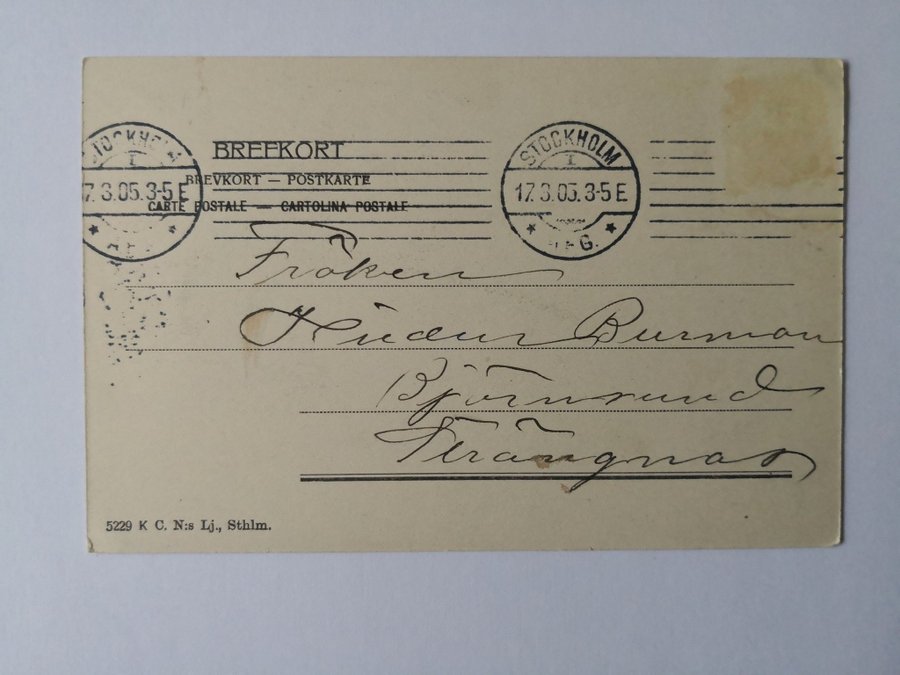 BREFKORT
BREVKORT — POSTKARTE
CARTE POSTALE — CARTOLINA POSTALE
STOCKHOLM
1
7.3.05.3-5 E
STOCKHOLM
1
17.3.05.3-5 E
Fröken
Burman
Björnsund
Strängnäs
5229 K C. N:s Lj., Sthlm.